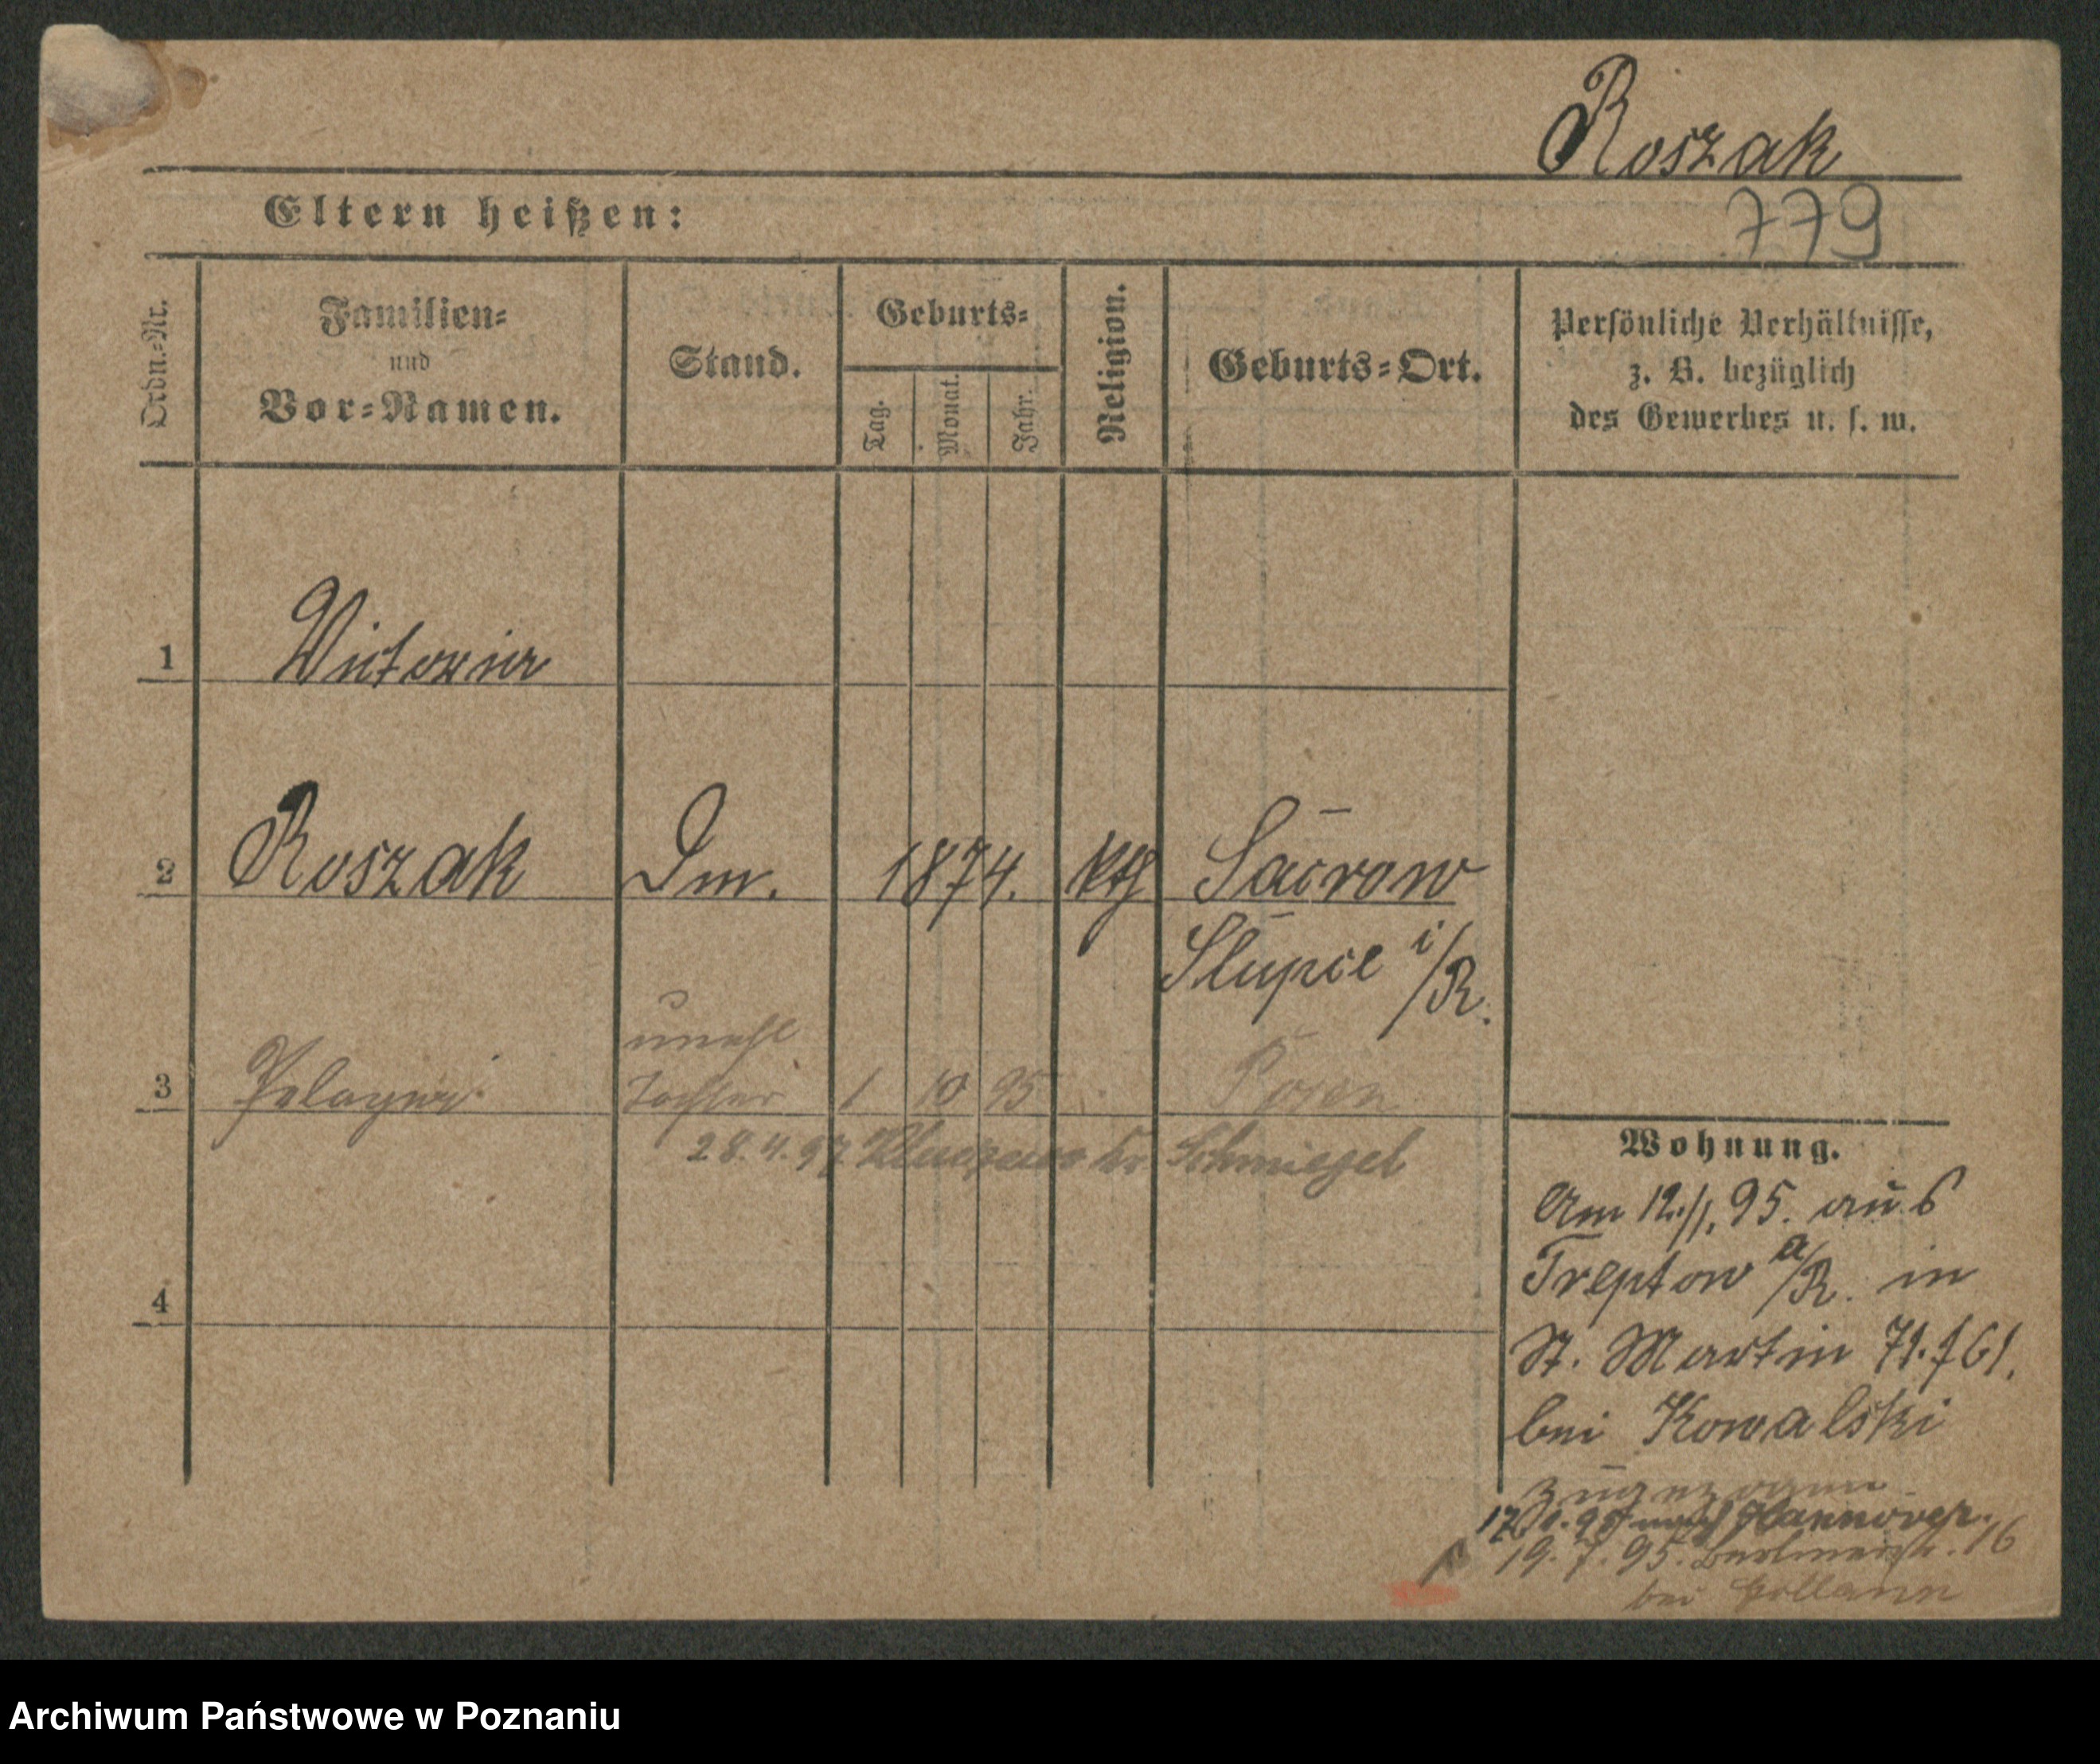 Roszak
Eltern heißen:
779
Ordn.-Nr.
Familien-
und
Vor-Namen.
Stand.
Geburts-
Tag.
Monat.
Jahr.
Religion.
Geburts-Ort.
Persönliche Verhältnisse,
z. B. bezüglich
des Gewerbes u. s. w.
1
2 Roszak Dm. 1874. kth
Slupce i/R.
unehl
3 Tochter 1 10 95 Posen
28.4.97 Kr Schmiegel
4
Wohnung.
Am 12./1. 95. aus
Treptow a/R. in
St. Martin 71.
bei Kowalski
zugezogen
nach Hannover.
19. 7. 95. 16
bei
Archiwum Państwowe w Poznaniu